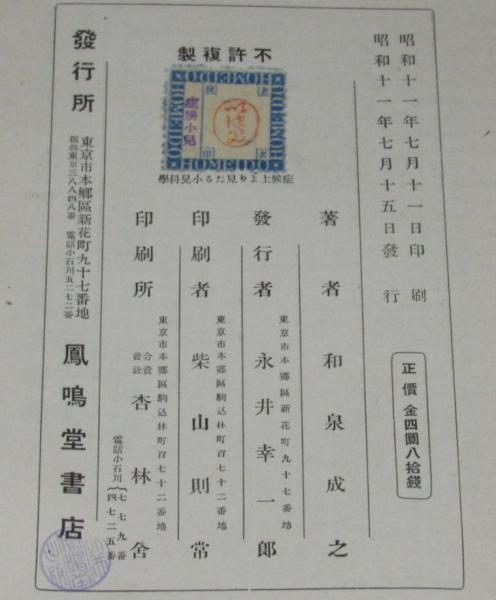 昭和十一年七月十一日印刷
昭和十一年七月十五日發行
正價金四圓八拾錢
不許複製
HOMEIDO
HOMEIDO
HOMEIDO
HOMEIDO
症候小兒
印
症候上より見たる小兒科學
著者 和泉成之
發行者 東京市本鄕區新花町九十七番地 永井幸一郎
印刷者 東京市本鄕區駒込林町百七十二番地 柴山則常
印刷所 東京市本鄕區駒込林町百七十二番地 合資會社 杏林舍
電話小石川 七七九番 四七二五番
發行所 東京市本鄕區新花町九十七番地 鳳鳴堂書店
振替東京三八八四八番 電話小石川五二七二番